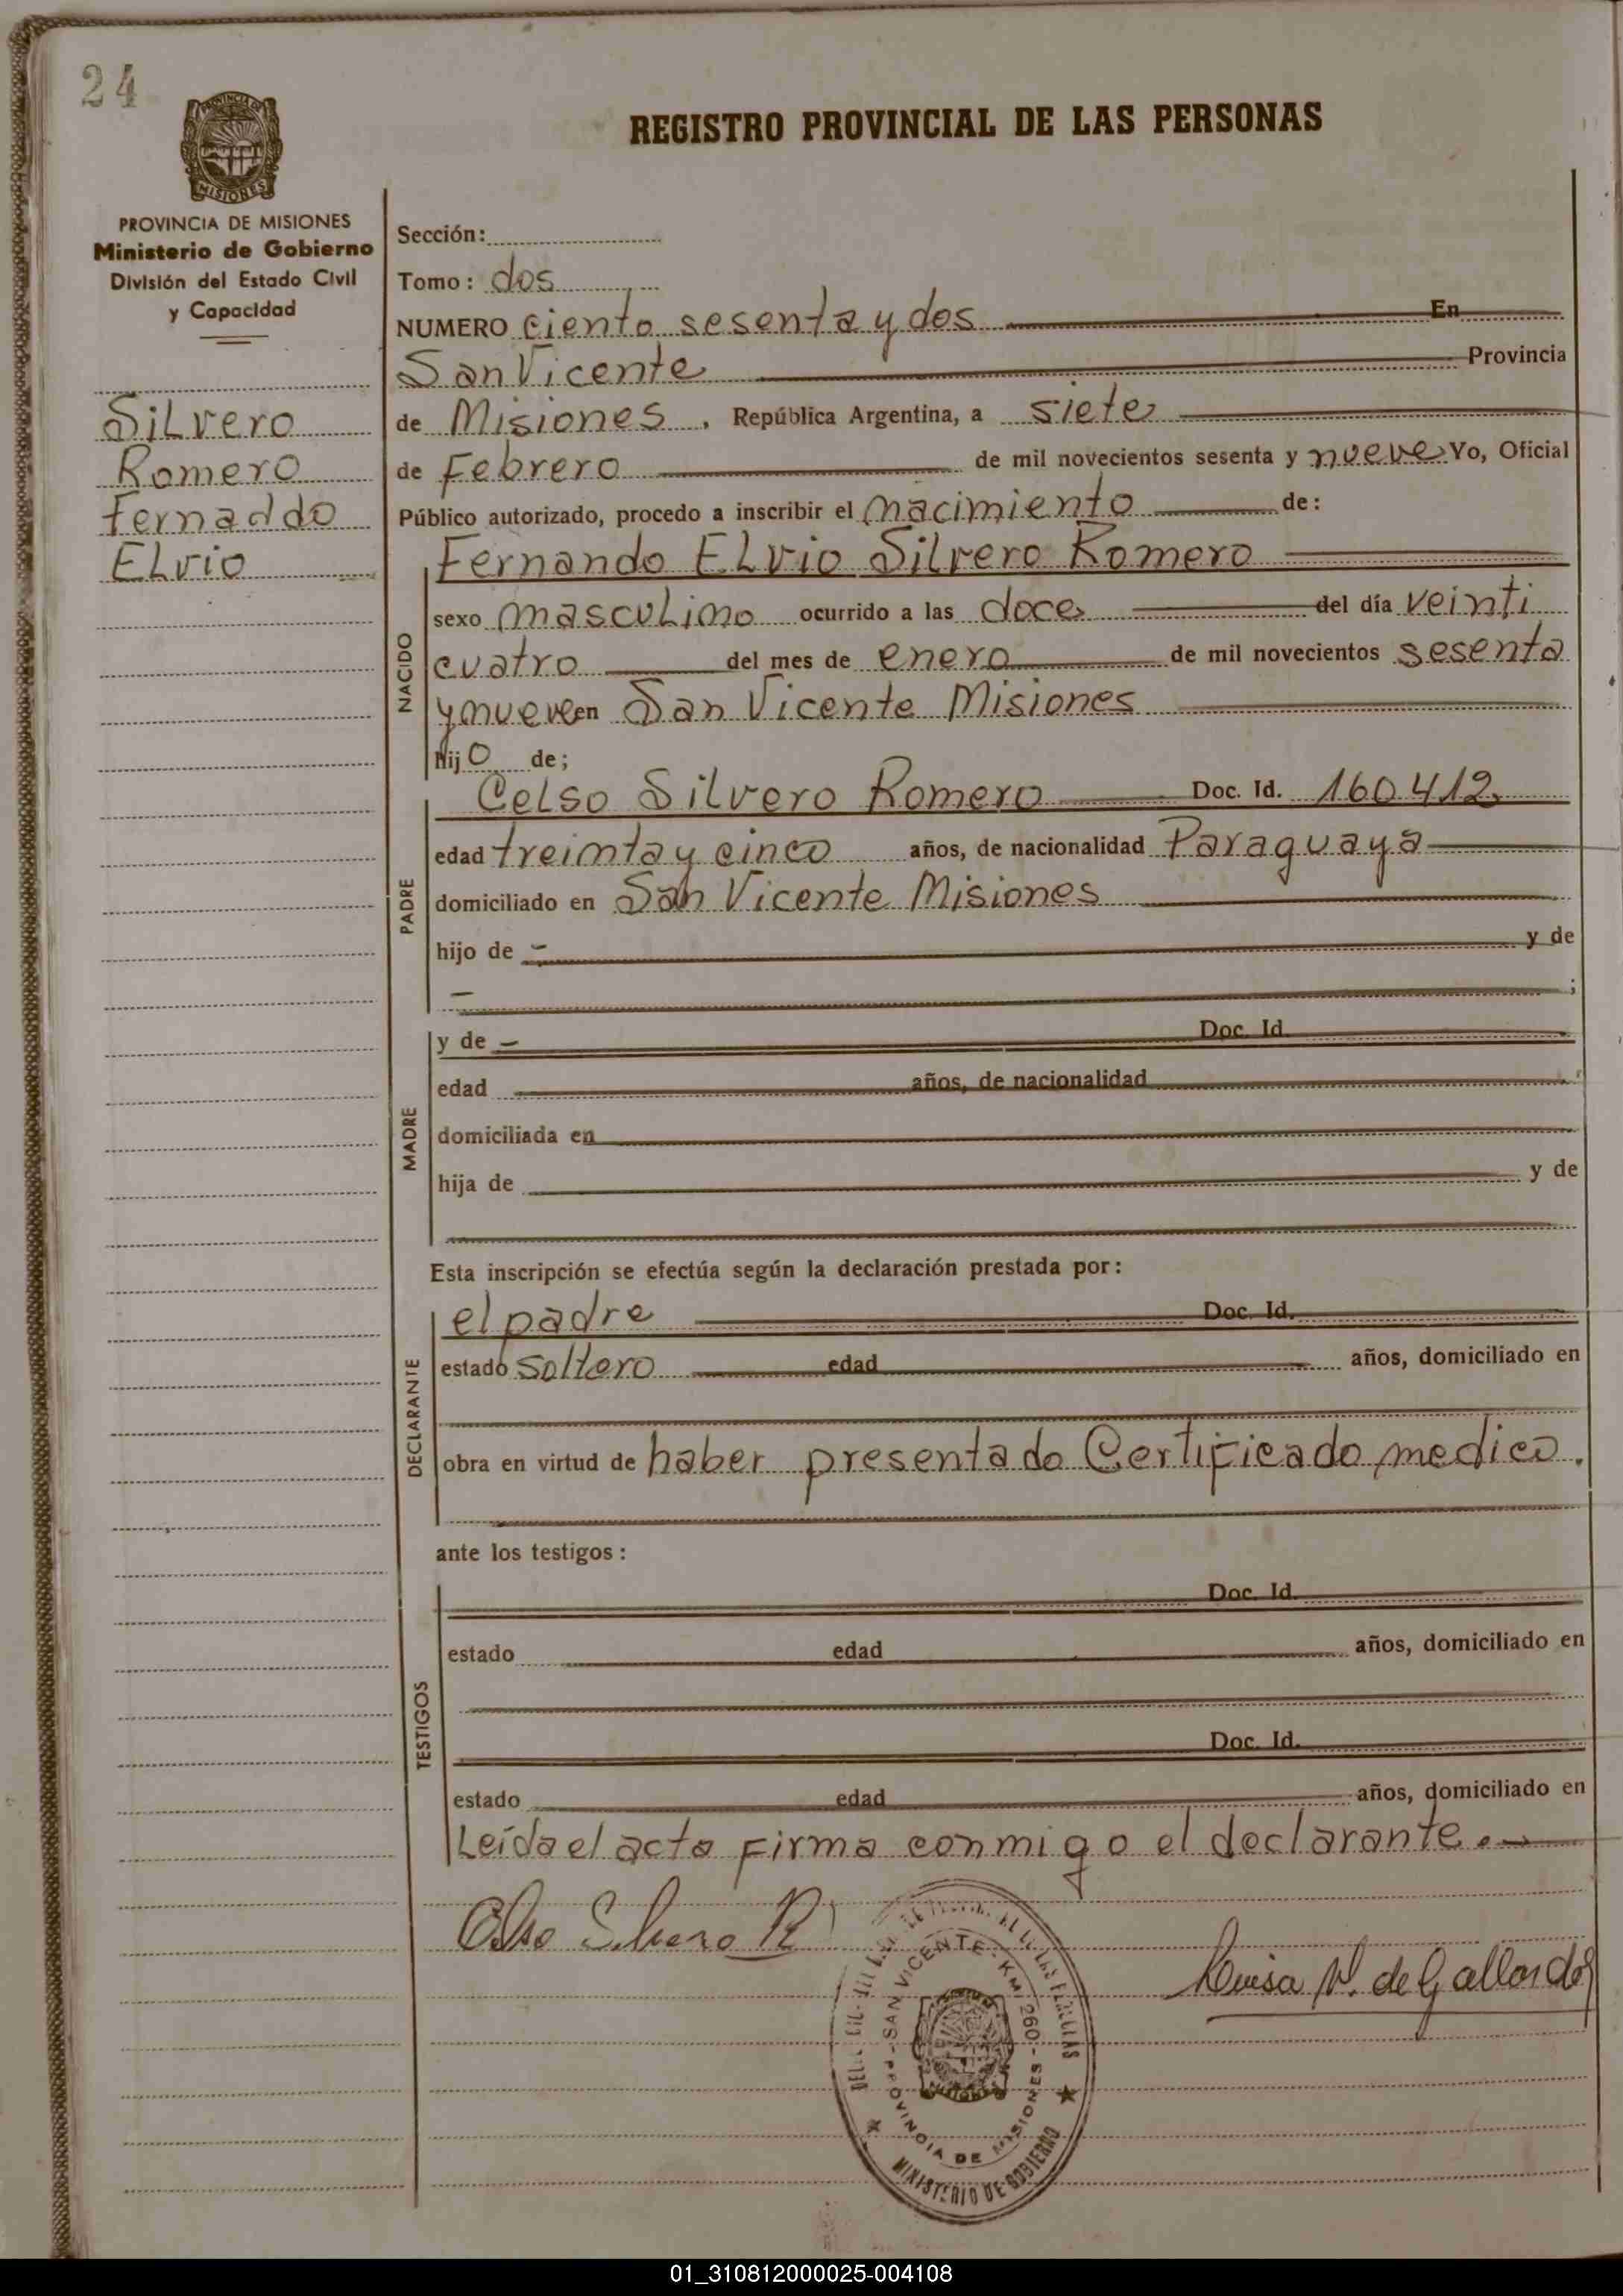 24
REGISTRO PROVINCIAL DE LAS PERSONAS
PROVINCIA DE
MISIONES
PROVINCIA DE MISIONES
Ministerio de Gobierno
División del Estado Civil
y Capacidad
Silvero
Romero
Fernaddo
Elvio
Sección:
Tomo: dos
NUMERO ciento sesenta y dos En
San Vicente Provincia
de Misiones, República Argentina, a siete
de Febrero de mil novecientos sesenta y nueve Yo, Oficial
Público autorizado, procedo a inscribir el nacimiento de:
NACIDO
Fernando Elvio Silvero Romero
sexo masculino ocurrido a las doce del día veinti
cuatro del mes de enero de mil novecientos sesenta
y nueve en San Vicente Misiones
hijo de;
PADRE
Celso Silvero Romero Doc. Id. 160412
edad treinta y cinco años, de nacionalidad Paraguaya
domiciliado en San Vicente Misiones
hijo de - y de
- ;
MADRE
y de - Doc. Id.
edad años, de nacionalidad
domiciliada en
hija de y de
Esta inscripción se efectúa según la declaración prestada por:
DECLARANTE
el padre Doc. Id.
estado soltero edad años, domiciliado en
obra en virtud de haber presentado Certificado medico.
ante los testigos:
TESTIGOS
Doc. Id.
estado edad años, domiciliado en
Doc. Id.
estado edad años, domiciliado en
Leída el acta firma conmigo el declarante.
Celso Silvero R
Luisa V. de Gallardo
SAN VICENTE - KM. 260 -
PROVINCIA DE MISIONES
MINISTERIO DE GOBIERNO
01_310812000025-004108